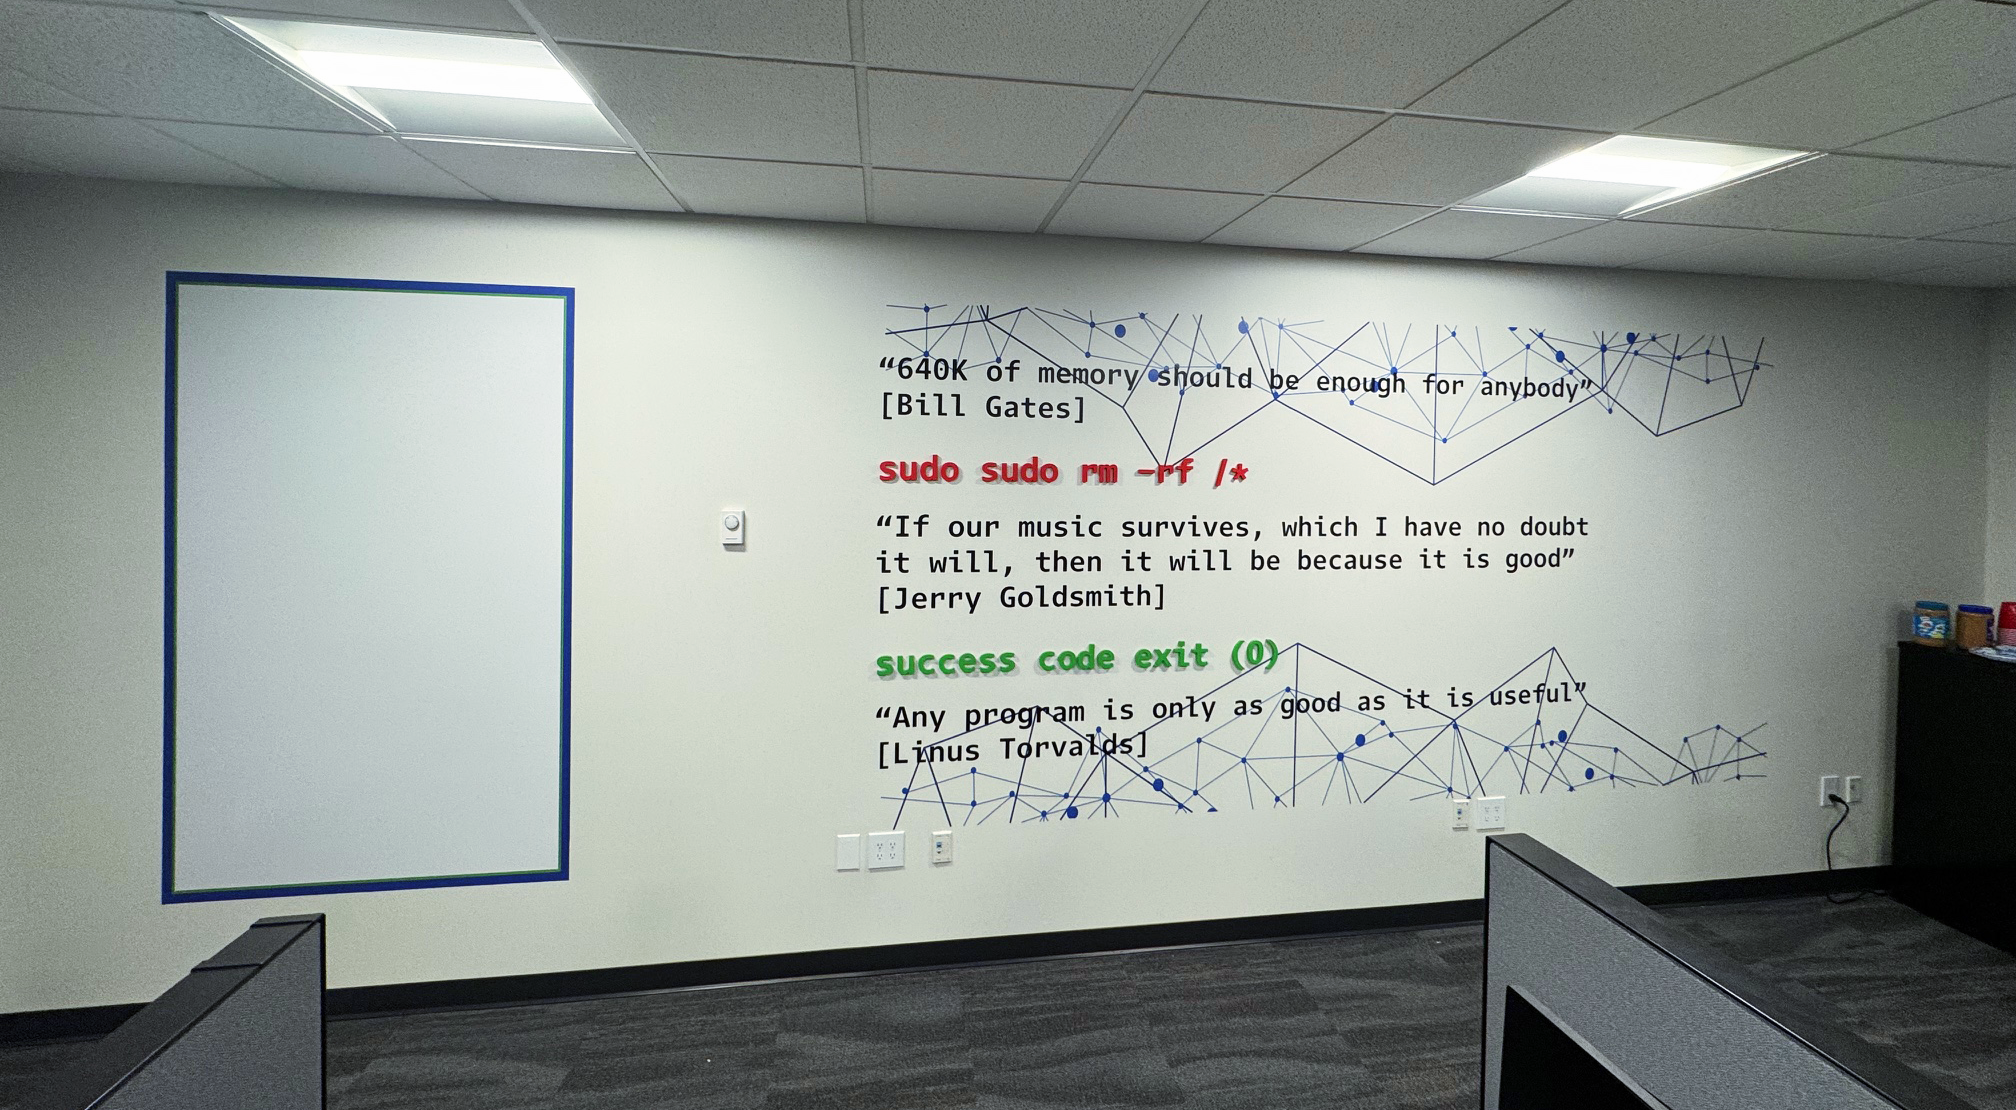 “640K of memory should be enough for anybody”
[Bill Gates]
sudo sudo rm -rf /*
“If our music survives, which I have no doubt
it will, then it will be because it is good”
[Jerry Goldsmith]
success code exit (0)
“Any program is only as good as it is useful”
[Linus Torvalds]